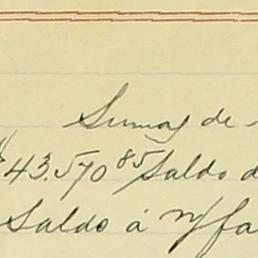 Sumas de
43.570 85 Saldo d
Saldo á n/fa